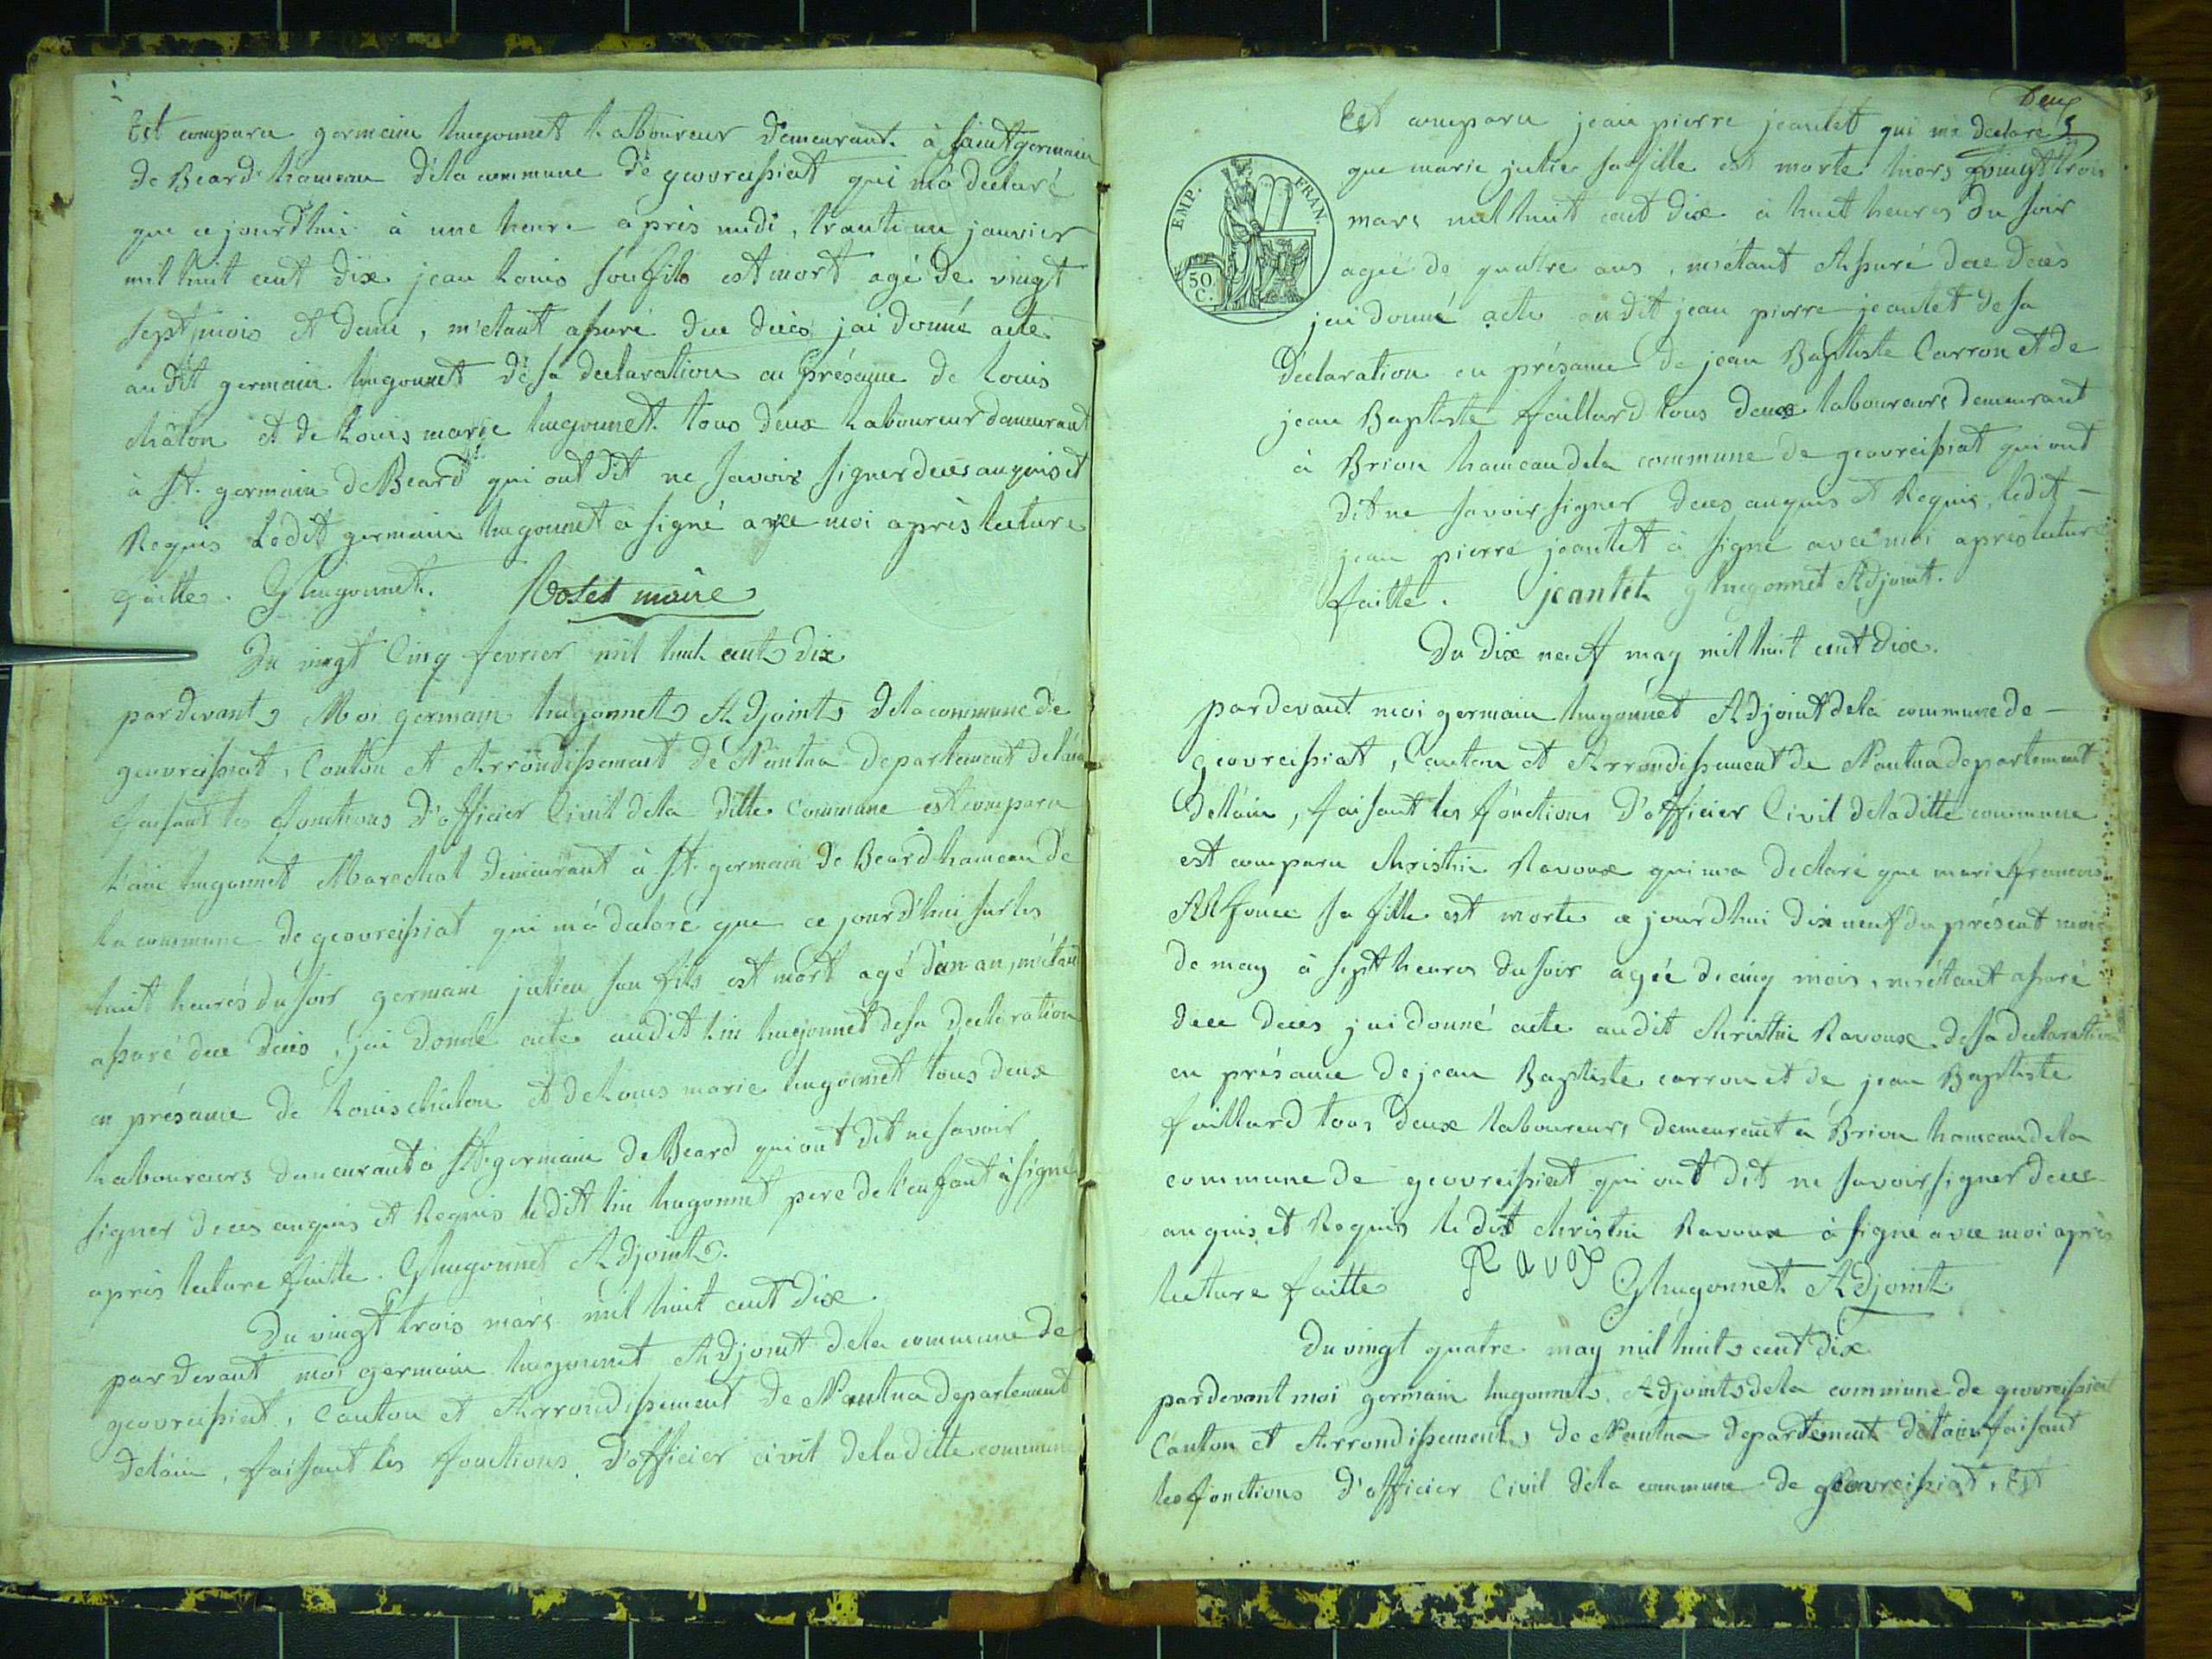 Est comparu germain hugonnet Laboureur demeurant à saint germain
de Beard hameau déla commune de geovreissiat qui má declaré
que cejourdhui à une heure après midi, trante un janvier
mil huit cent dix jean Louis son fils est mort agé de vingt
sept mois et demi, m'etant assuré due décès j'ai donné acte
audit germain hugonnet dé sa declaration en présance de Louis
châton et de Louis marie hugonnet tous deux Laboureur demeurant
à St. germain de Beard qui ont dit ne savoir signer de ces anquis et
Requis Ledit germain hugonnet à signé avec moi après lecture
faitte. G hugonnet. maire
Du vingt Cinq fevrier mil huit cent dix
pardevant Moi germain hugonnet Adjoint déla commune de
geovreissiat, Canton et Arrondissement de Nantua departement delain
faisant les fonctions d'officier Civil dela ditte Commune est comparu
hugonnet Marechal demeurant à St. germain de Beard hameau de
la commune de geovreissiat qui má declaré que ce jourd'hui sur les
huit heures du soir germain julien son fils est mort agé d'un an, m'étant
assuré due décès, j'ai donné acte audit hugonnet de sa declaration
en présance de Louis châton et de Louis marie hugonnet tous deux
Laboureurs demeurant à St. germain de Beard qui ont dit ne savoir
signer de ces anquis et Requis ledit hugonnet pere de l'enfant à signé
après lecture faitte. G hugonnet Adjoint.
Du vingt trois mars mil huit cent dix.
pardevant moi germain hugonnet Adjoint dela commune de
geovreissiat, Canton et Arrondissement de Nantua departement
delain, faisant les fonctions d'officier civil deladitte commune
Deux
Est comparu jean pierre jeantet qui ma declaré
que marie julie sa fille est morte hiers vingt trois
mars mil huit cent dix à huit heures du soir
EMP. FRAN.
50 C.
agée de quatre ans, m'étant Assuré due décès
jai donné acte audit jean pierre jeantet de sa
déclaration en présance de jean Baptiste Carron et de
jean Baptiste faillard tous deux laboureurs demeurant
à Brion hameau dela commune de geovreissiat qui ont
dit ne savoir signer de ces anquis et Requis, ledit
jean pierre jeantet à signé avec moi après lecture
faitte. jeantet g hugonnet Adjoint.
Du dix neuf may mil huit cent dix.
pardevant moi germain hugonnet Adjoint dela commune de
geovreissiat, Canton et Arrondissement de Nantua departement
delain, faisant les fonctions d'officier Civil deladitte commune
est comparu christin Ravoux qui ma declaré que marie francois
sa fille est morte cejourdhui dix neuf du présent mois
de may à sept heures du soir agée de cinq mois, m'étant assuré
due deces j'ai donné acte audit christin Ravoux de sa declaration
en présance de jean Baptiste carron et de jean Baptiste
faillard tous deux laboureurs demeurant à Brion hameau dela
commune de geovreissiat qui ont dit ne savoir signer de ces
anquis et Requis ledit christin Ravoux à signé avec moi après
lecture faitte Ravox G hugonnet Adjoint
Du vingt quatre may mil huit cent dix
pardevant moi germain hugonnet Adjoint dela commune de geovreissiat
Canton et Arrondissement de Nantua departement delain faisant
les fonctions d'officier Civil dela commune de geovreissiat, Est